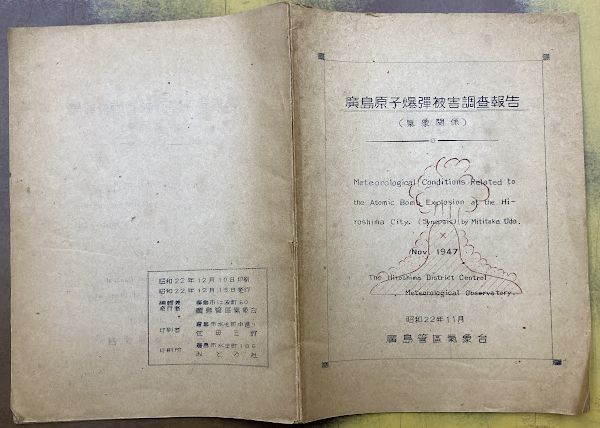 廣島原子爆彈被害調査報告
(氣象関係)
Meteorological Conditions Related to
the Atomic Bomb Explosion at the Hi-
roshima City. (Synopsis) by Mititaka Uda.
×
Nov. 1947.
The Hiroshima District Central
Meteorological Observatory.
昭和22年11月
廣島管區氣象台
昭和22年12月10日印刷
昭和22年12月15日発行
編輯兼
発行者
廣島市江波町60
廣島管區氣象台
印刷者
廣島市水主町中通り
印刷所
廣島市水主町
みどり社